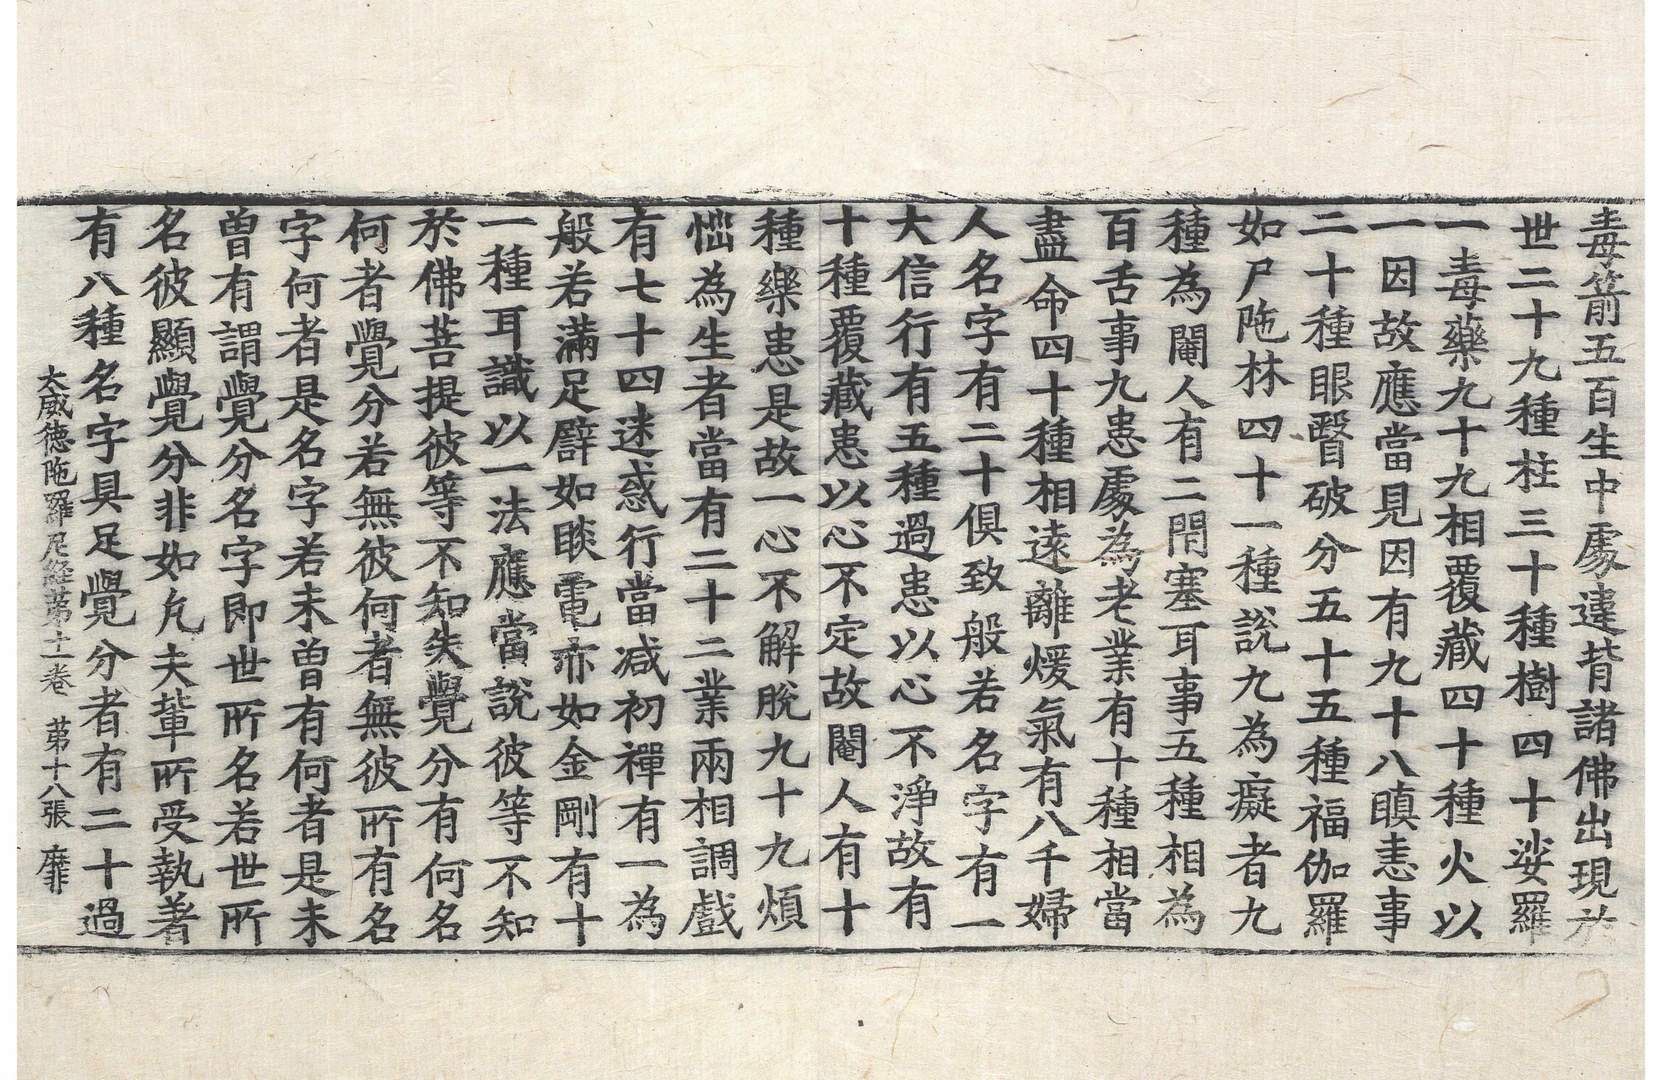 毒箭五百生中處違背諸佛出現於
世二十九種柱三十種樹四十娑羅
一毒藥九十九相覆藏四十種火以
一因故應當見因有九十八瞋恚事
二十種眼瞖破分五十五種福伽羅
如尸陁林四十一種說九為癡者九
種為閹人有二閇塞耳事五種相為
百舌事九患處為老業有十種相當
盡命四十種相遠離煖氣有八千婦
人名字有二十俱致般若名字有一
大信行有五種過患以心不淨故有
十種覆藏患以心不定故閹人有十
種樂患是故一心不解脫九十九煩
惱為生者當有二十二業兩相調戲
有七十四迷惑行當減初禪有一為
般若滿足譬如睒電亦如金剛有十
一種耳識以一法應當說彼等不知
於佛菩提彼等不知失覺分有何名
何者覺分若無彼何者無彼所有名
字何者是名字若未曾有何者是未
曾有謂覺分名字即世所名若世所
名彼顯覺分非如凡夫輩所受執著
有八種名字具足覺分者有二十過
大威德陁羅尼経苐十二卷 苐十八張 靡